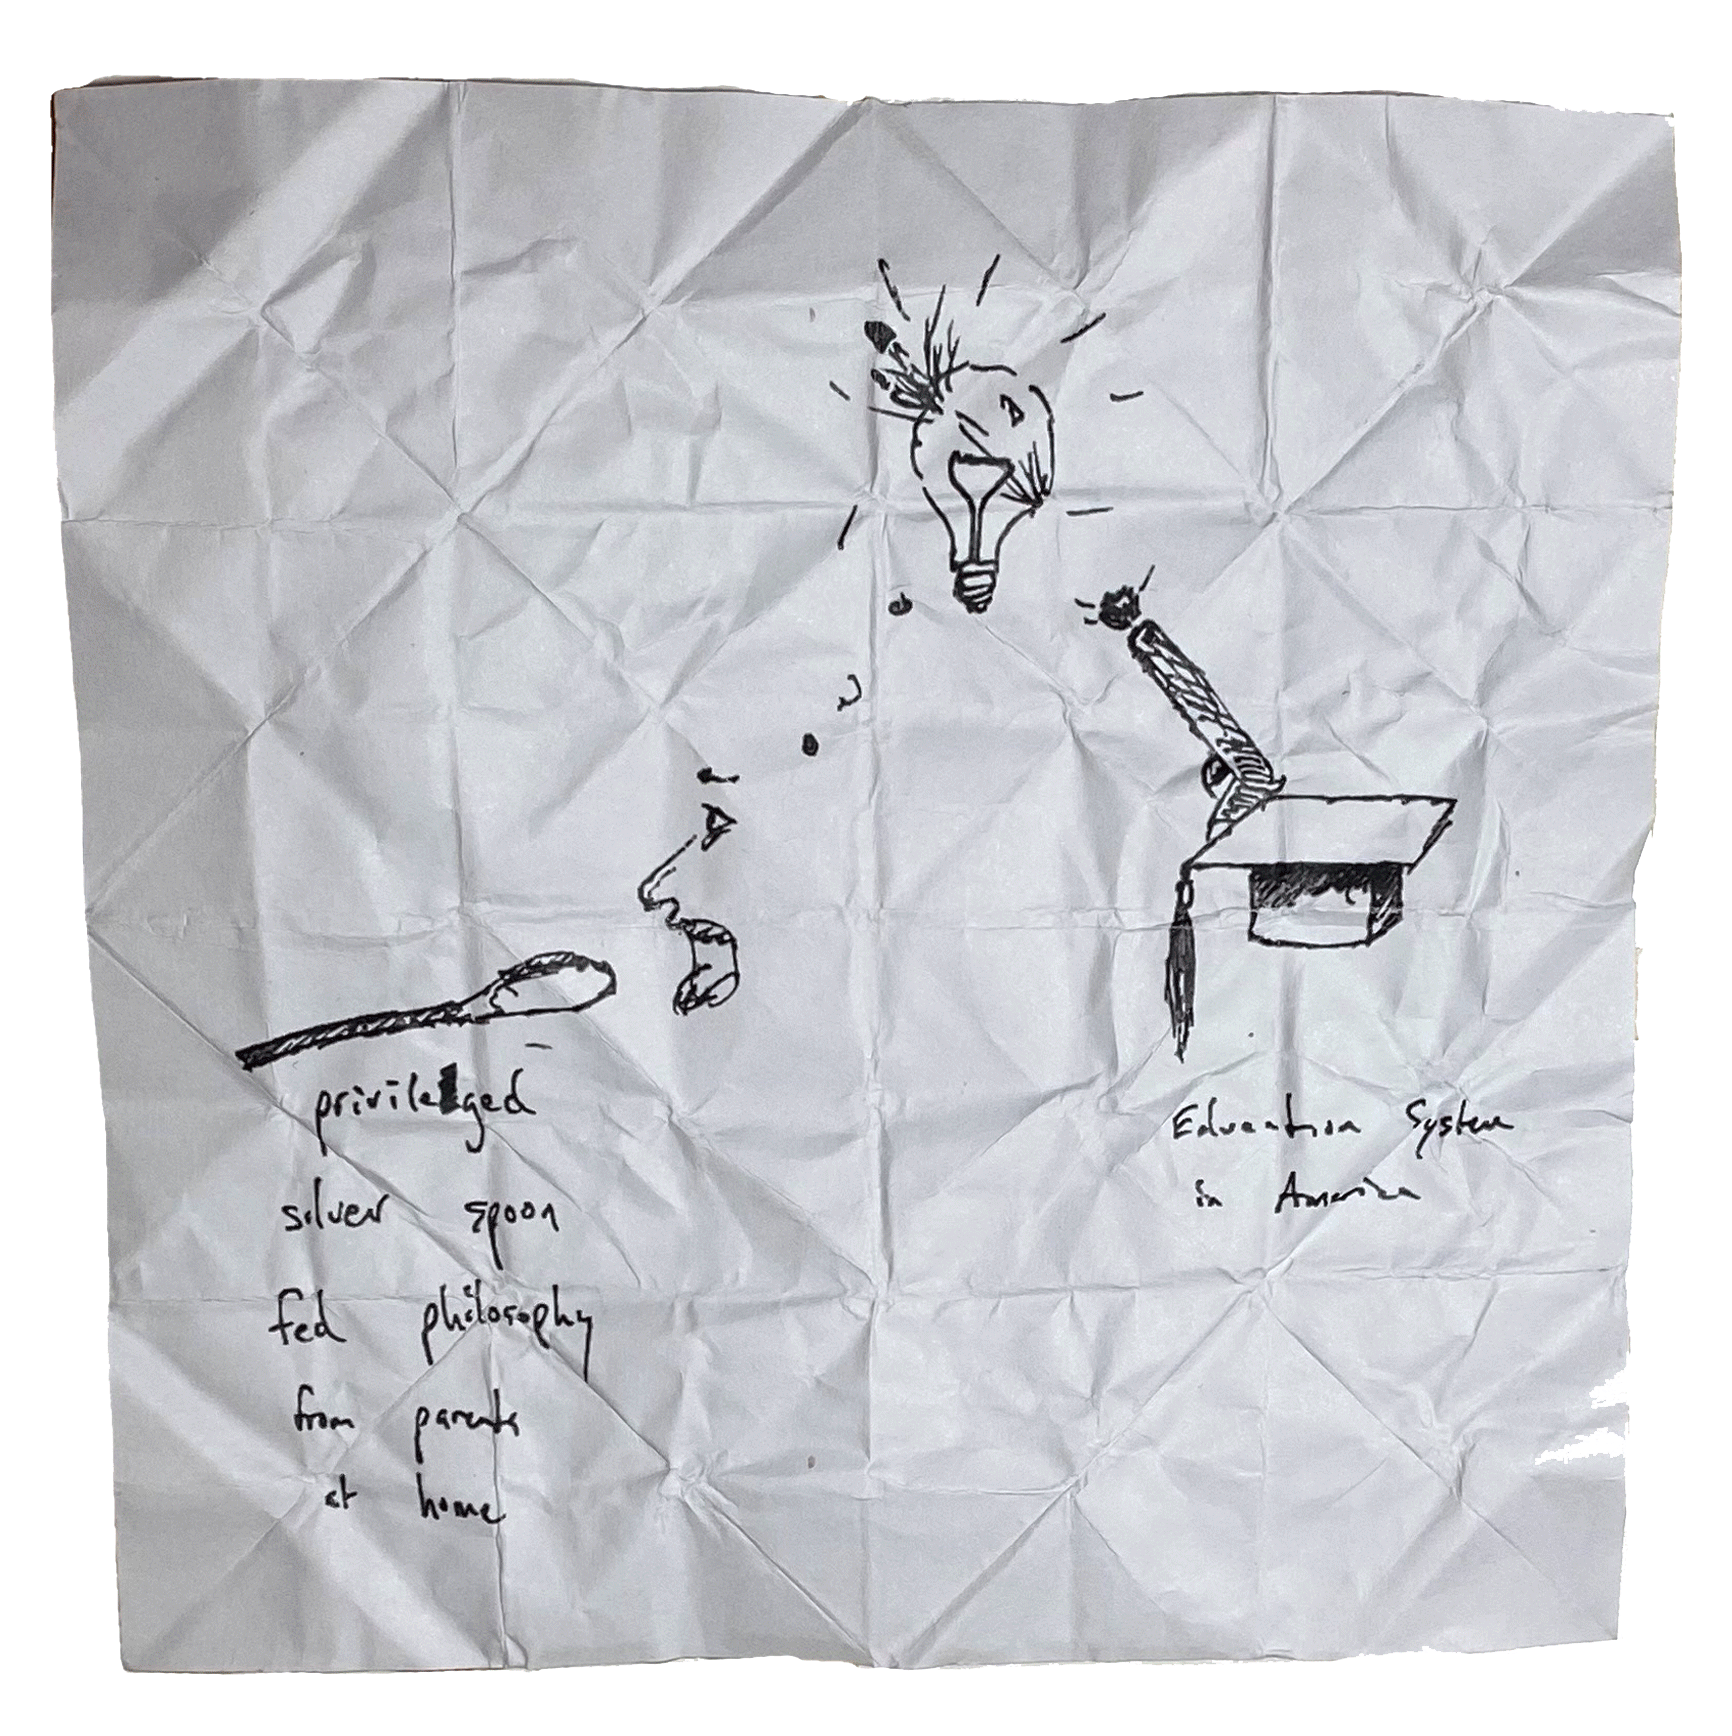 privileged
silver spoon
fed philosophy
from parents
at home
Education System
in America